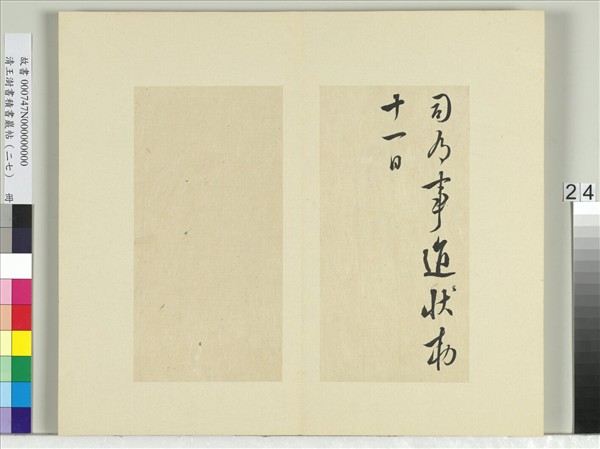 司為事狀勅
十一日
故書 000747N000000000
清王澍書積書巖帖（二七） 冊
24